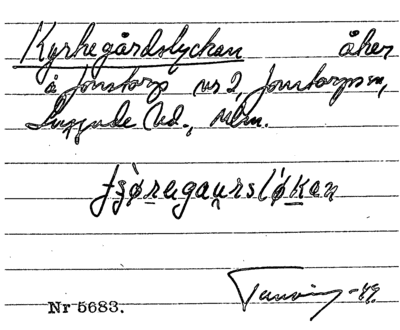 Kyrhegårdslyckan åker
å Jonstorp nr 2, Jonstorps sn,
Luggude hd., Mlm.
tʃø̀regau̯rslø̀kan
-49.
Nr 5683.